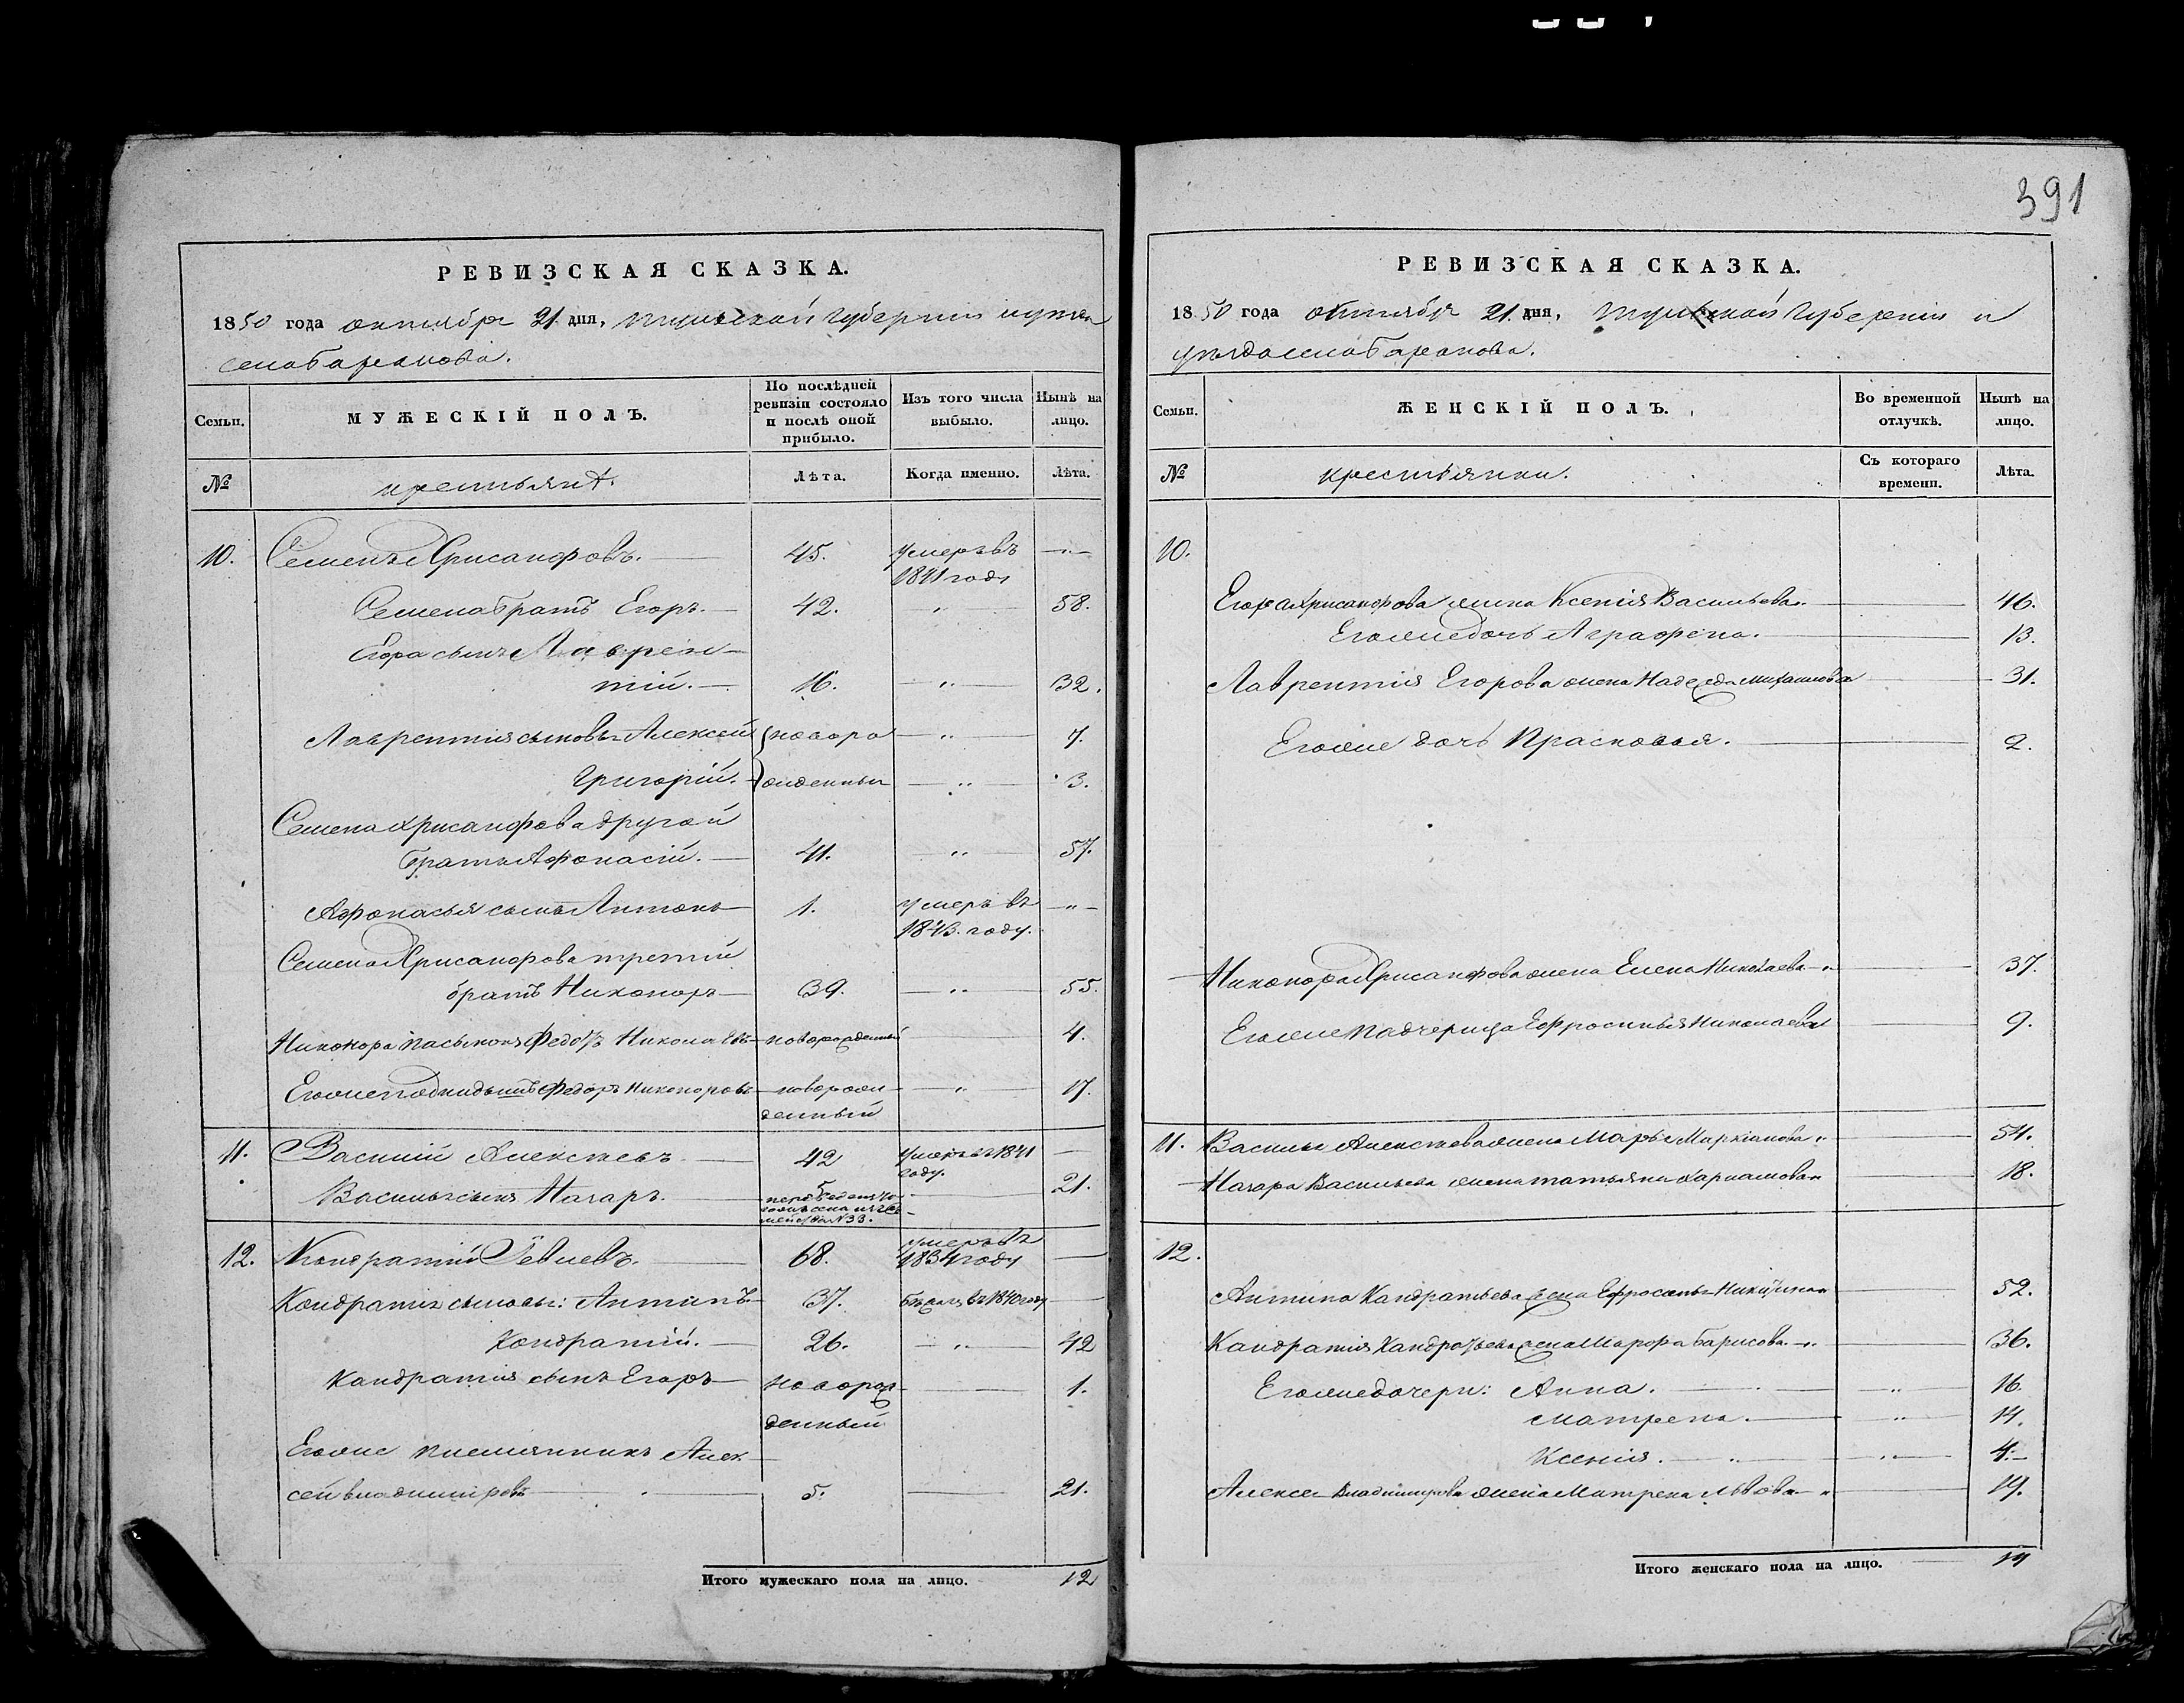 391
РЕВИЗСКАЯ СКАЗКА.
1850 года октября 21 дня, Тульской Губернии и уѣзда
села Баранова.
Семьи. МУЖЕСКІЙ ПОЛЪ. По послѣдней ревизіи состояло и послѣ оной прибыло. Изъ того числа выбыло. Нынѣ на лицо.
№ крестьянѣ. Лѣта. Когда именно. Лѣта.
10. Семенъ Хрисанфовъ. 45. умеръ въ — „ —
1841 году
Семена братъ Егоръ. 42. „ 58.
Егора сынъ Лаврен-
тій. 16. „ 32.
Лаврентия сыновья Алексей новоро „ 7.
Григорій. жденныи „ 3.
Семена Хрисанфова другой
братъ Афонасій. 41. „ 57.
Афонасья сынъ Антонъ 1. умеръ въ — „ —
1843. году.
Семена Хрисанфова третій
братъ Никоноръ 39. „ 55.
Никонора пасынокъ Федотъ Николаевъ новорожденный 4.
Егоже подкидышъ Федоръ Никоноровъ новорож „ 17.
денный
11. Василій Алексѣевъ. 42 умеръ въ 1841 —
году.
Василья сынъ Назаръ. 5 21.
№ 33.
12. Кондратій 68. умеръ въ —
1834 году
Кондратия сыновья: Антипъ 37. бѣжалъ въ 1840 году —
Кондратій. 26. „ 42
Кандратия сынъ Егоръ новорож 1.
денный
Егоже племянникъ Алек-
сей Владимировъ 5. 21.
Итого мужескаго пола на лицо. 12
РЕВИЗСКАЯ СКАЗКА.
1850 года октября 21 дня, Тульской Губернии и
уѣзда села Баранова.
Семьи. ЖЕНСКІЙ ПОЛЪ. Во временной отлучкѣ. Нынѣ на лицо.
№ крестьянки. Съ котораго времени. Лѣта.
10.
Егора Хрисанфова жена Ксенія Васильева. 46.
Егоже дочь Аграфена. 13.
Лаврентия Егорова жена Надежда Михаилова 31.
Егоже дочь Прасковья. 2.
Никонора Хрисанфова жена Елена Николаева 37.
Егоже падчерица Ефросинья Николаева 9.
11. Василья Алексѣева жена Марья Маркіанова 54.
Назара Васильева жена Татьяна Харламова 18.
12.
Антипа Кандратьева жена Ефросинья Никитина 52.
Кандратия Кандратьева жена Марфа Барисова 36.
Егоже дочери: Анна. „ 16.
Матрена. „ 14.
Ксенія. „ „ 4.
Алексея Владимирова жена Матрена Львова 19.
Итого женскаго пола на лицо. 14